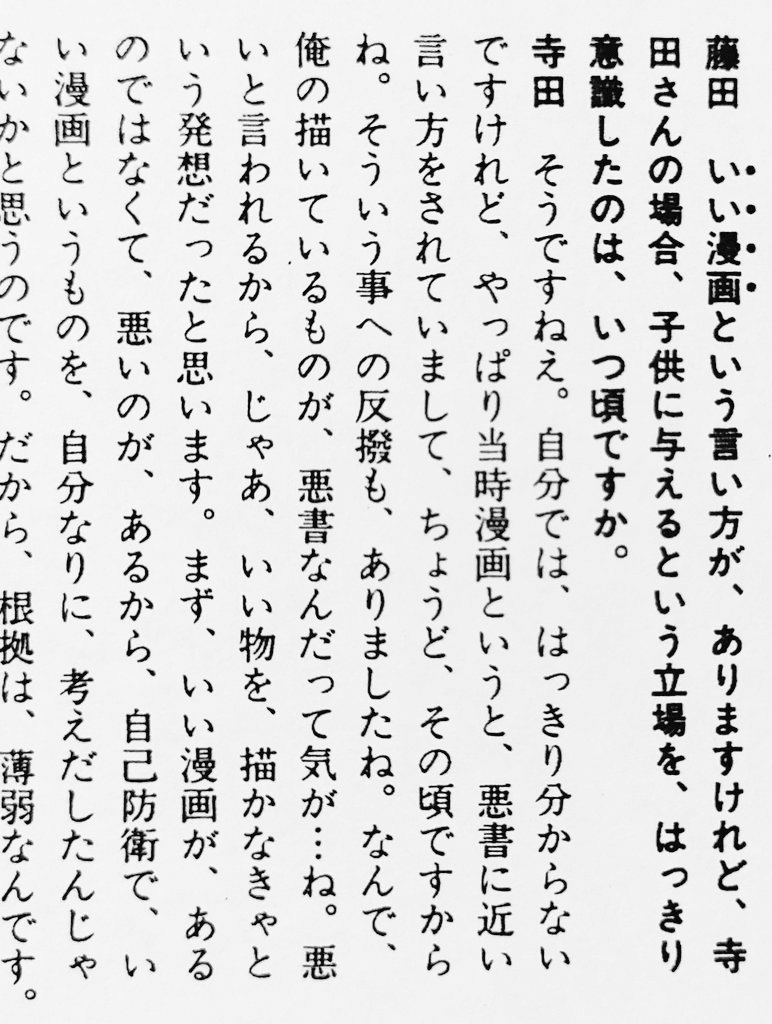 藤田　いい漫画という言い方が、ありますけれど、寺
田さんの場合、子供に与えるという立場を、はっきり
意識したのは、いつ頃ですか。
寺田　そうですねえ。自分では、はっきり分からない
ですけれど、やっぱり当時漫画というと、悪書に近い
言い方をされていまして、ちょうど、その頃ですから
ね。そういう事への反撥も、ありましたね。なんで、
俺の描いているものが、悪書なんだって気が…ね。悪
いと言われるから、じゃあ、いい物を、描かなきゃと
いう発想だったと思います。まず、いい漫画が、ある
のではなくて、悪いのが、あるから、自己防衛で、い
い漫画というものを、自分なりに、考えだしたんじゃ
ないかと思うのです。だから、根拠は、薄弱なんです。